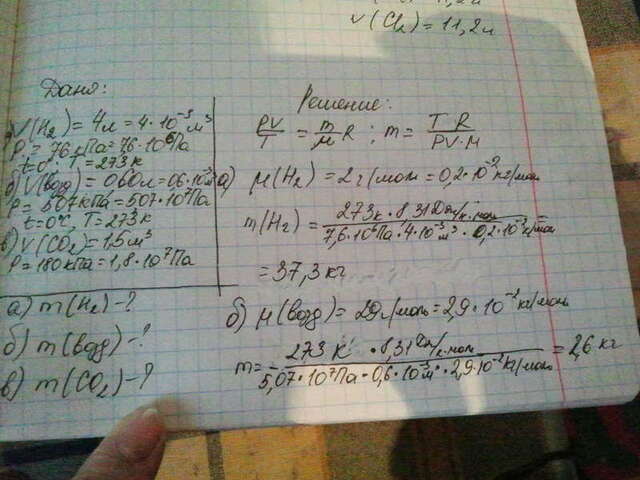 V(Cl₂) = 11,2л
Дана:
V(H₂) = 4л = 4·10⁻³ м³
P = 76 кПа = 76·10⁶ Па
t=0°, T = 273 К
б) V(возд) = 060л = 06·10⁻³ м³
P = 507 кПа = 507·10⁷ Па
t=0°С, T = 273 К
в) V(CO₂) = 1,5 м³
P = 180 кПа = 1,8·10⁷ Па
а) m(H₂) - ?
б) m(возд) - ?
в) m(CO₂) - ?
Решение:
PV/T = m/M R ; m = T R/PV·M
а) M(H₂) = 2 г/моль = 0,2·10⁻² кг/моль
m(H₂) = 273 к · 8,31 Дж/к·моль / 7,6·10⁶ Па · 4·10⁻³ м³ · 0,2·10⁻² кг/моль
= 37,3 кг
б) M(возд) = 29 г/моль = 2,9·10⁻² кг/моль
m = 273 К · 8,31 Дж/к·моль / 5,07·10⁷ Па · 0,6·10⁻³ м³ · 2,9·10⁻² кг/моль = 2,6 кг